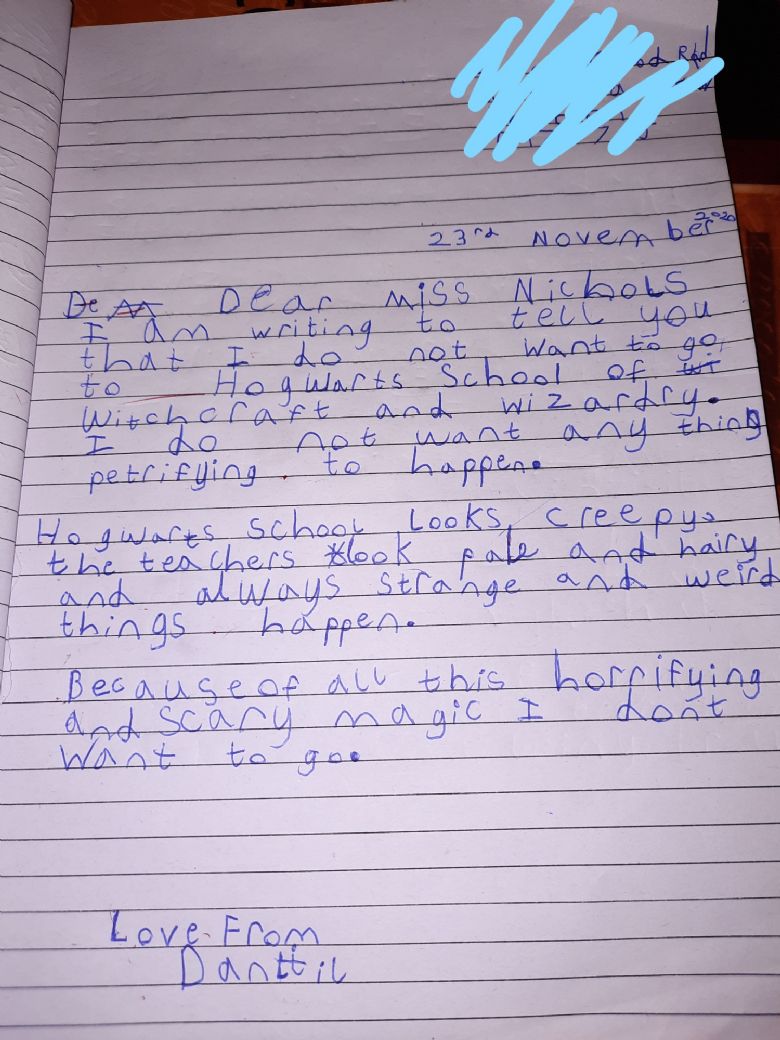 23rd November 2020
De Dear Miss Nichols
I am writing to tell you
that I do not want to go
to Hogwarts School of wi
Witchcraft and wizardry.
I do not want any thing
petrifying to happen.
Hogwarts school Looks creepy.
the teachers look pale and hairy
and always strange and weird
things happen.
Because of all this horrifying
and scary magic I dont
want to go.
Love From